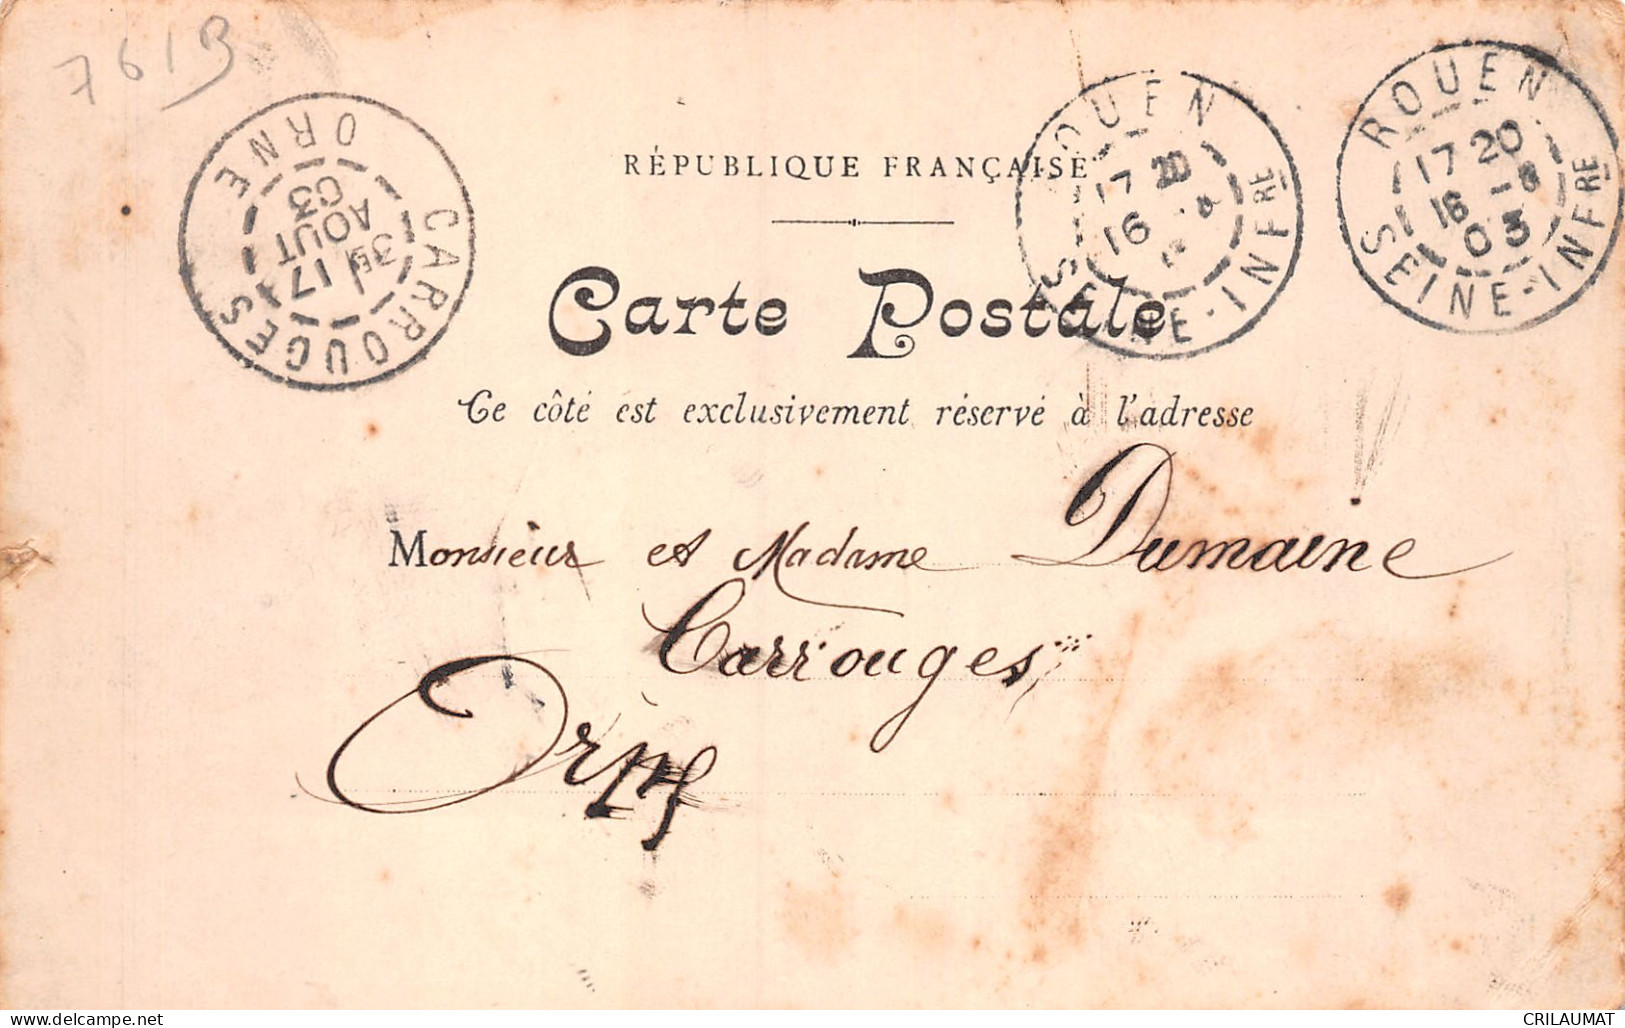 761B
ROUEN
17 20
16 -8
03
SEINE-INFRE
ROUEN
17 20
16
SEINE-INFRE
CARROUGES
3E
17
AOUT
03
ORNE
RÉPUBLIQUE FRANÇAISE
Carte Postale
Ce côté est exclusivement réservé à l'adresse
Monsieur et Madame Dumaine
Carrouges
Orne
delcampe.net
CRILAUMAT